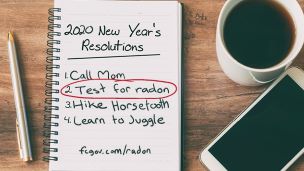 2020 New Year's
Resolutions
1. Call Mom
2. Test for radon
3. Hike Horsetooth
4. Learn to Juggle
fcgov.com/radon